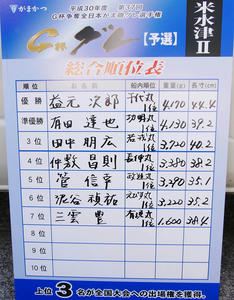 がまかつ
平成30年度 第37回
G杯争奪全日本がま磯グレ選手権
G杯グレ【予選】
米水津Ⅱ
総合順位表
順位 お名前 船内順位 重量(g) 長寸(cm)
優勝 益元 次郎 1位 4,170 44.4
準優勝 有田 達也 功明丸 1位 4,130 39.2
3位 田中 朋広 1位 3,720 40.2
4位 仲敷 昌則 1位 3,380 38.2
5位 菅 信幸 1位 3,290 35.1
6位 祐 1位 3,220 35.2
7位 三雲 豊 1位 1,600 38.4
8位
9位
10位
上位3名が全国大会への出場権を獲得。